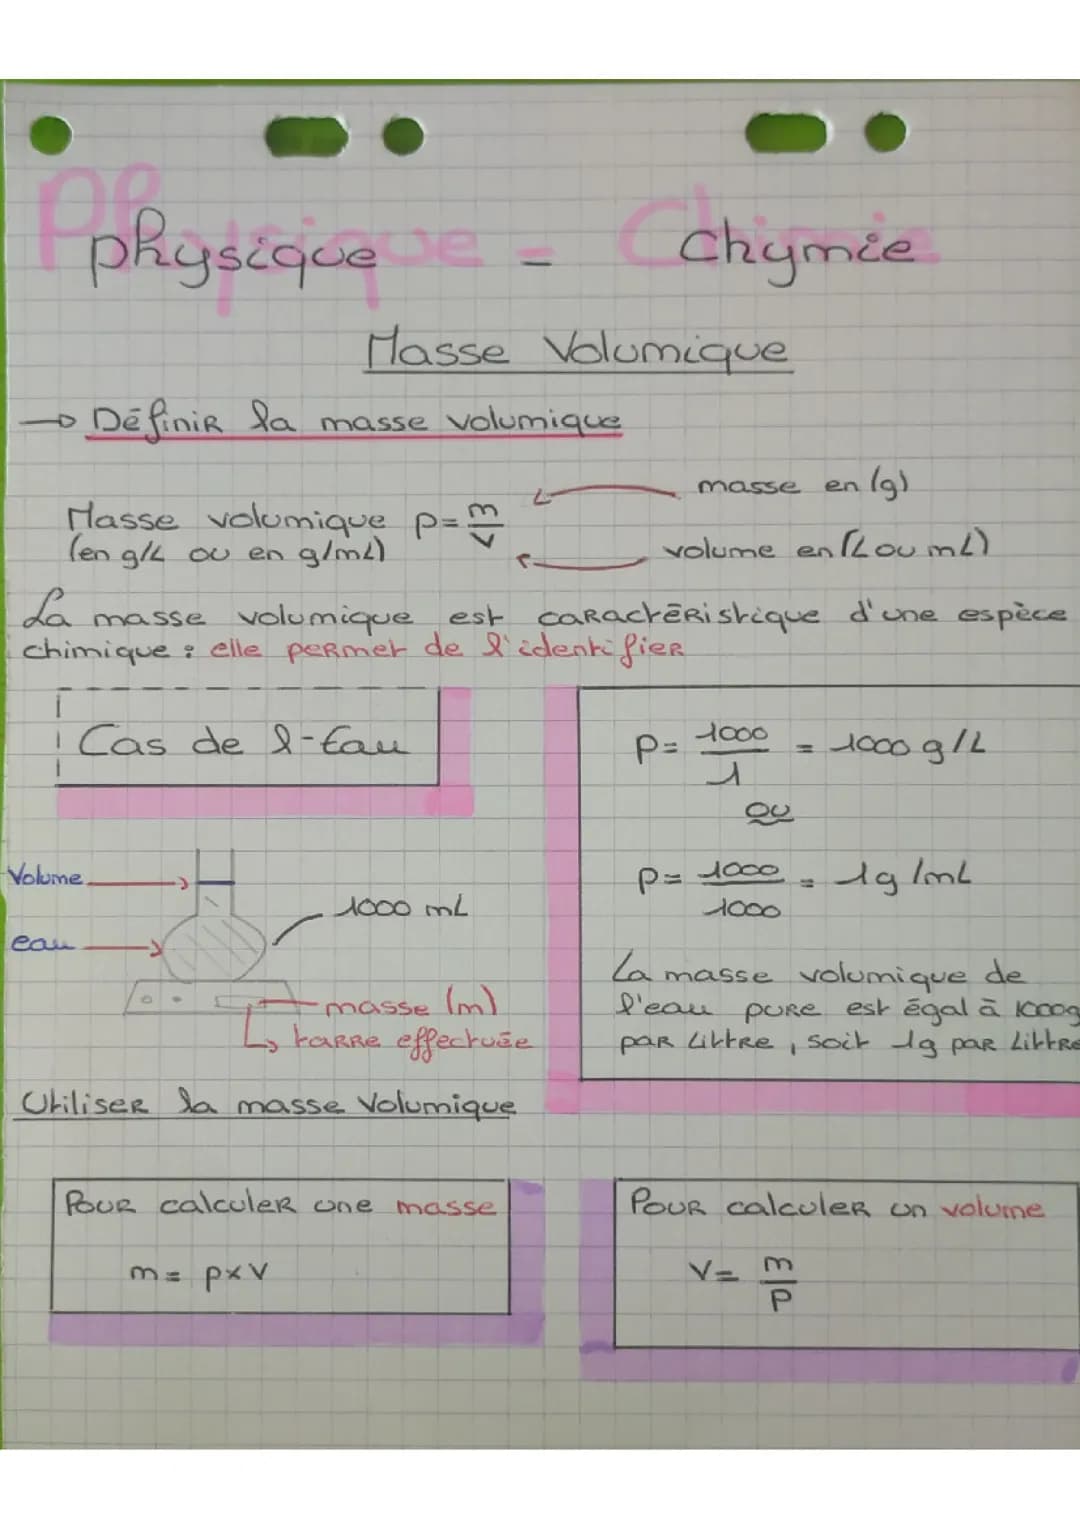 Physique Chimie
physique = chymie
Masse Volumique
→ Définir la masse volumique
masse en (g)
Masse volumique p = m/v
(en g/L ou en g/mL)
volume en (L ou mL)
La masse volumique est caractéristique d'une espèce
chimique : elle permet de l'identifier
Cas de l-Eau
p = 1000/1 = 1000 g/L
ou
p = 1000/1000 = 1g/mL
La masse volumique de
l'eau pure est égal à 1000g
par Littre, soit 1g par Littre
Volume
1000 mL
eau
masse (m)
↳ tarre effectuée
Utiliser la masse Volumique
Pour calculer une masse
m = p x V
Pour calculer un volume
V = m/P